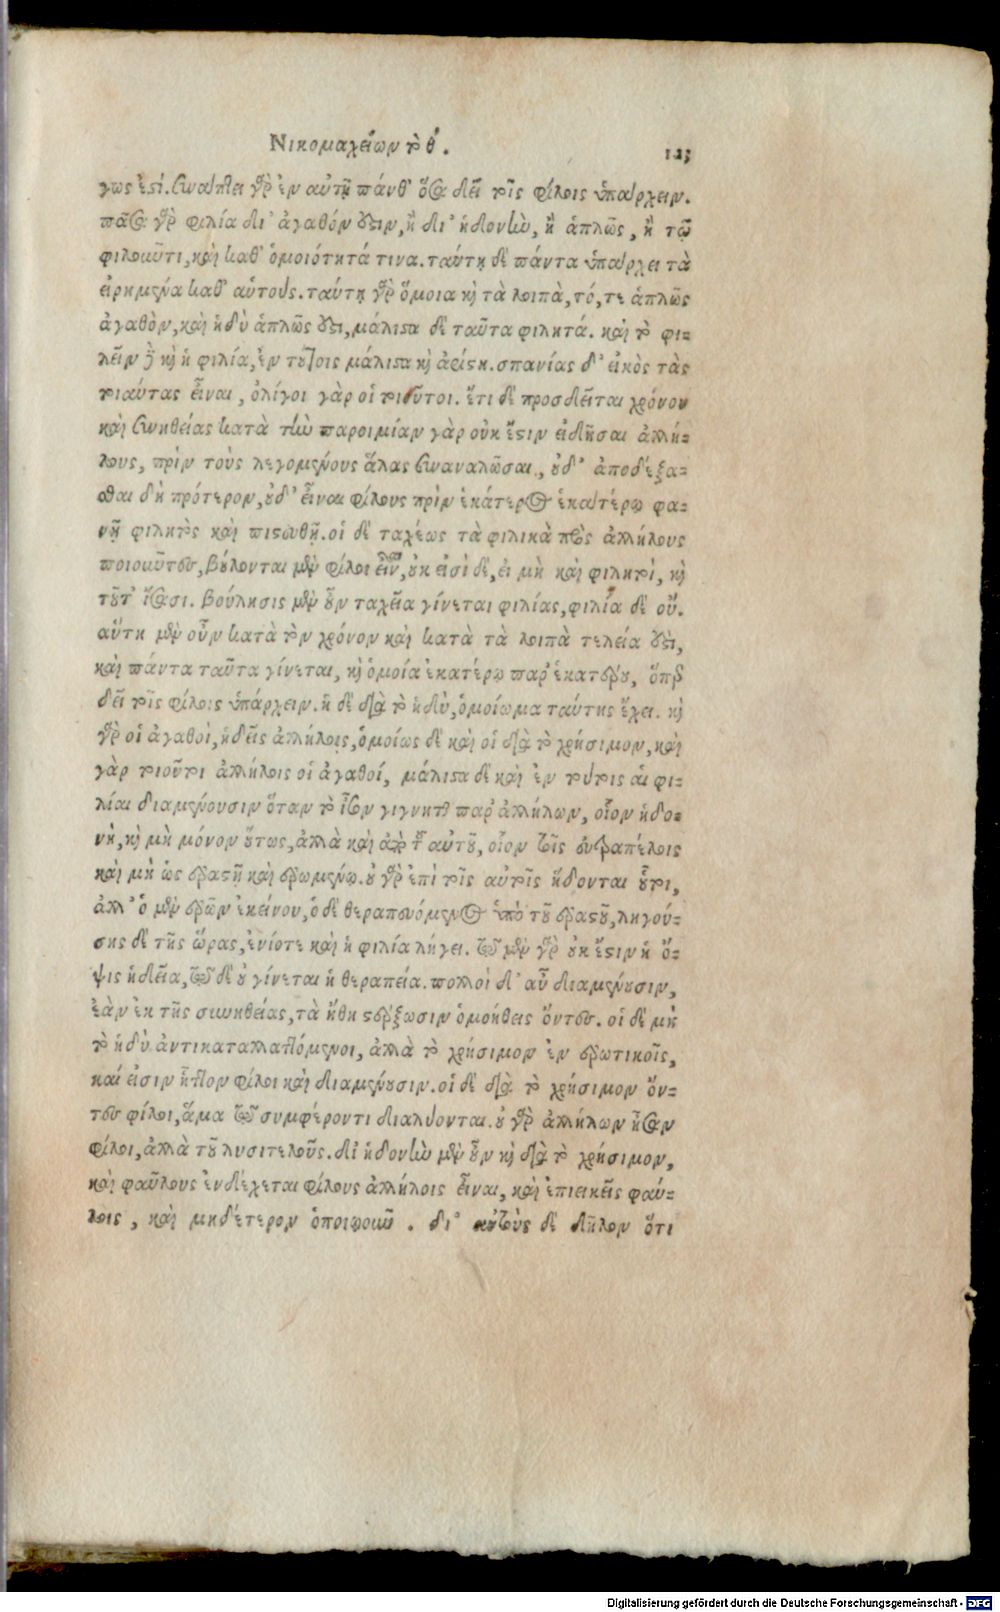 Νικομαχείων τὸ θʹ.
123
γως ἐστί. συνάπτει γὰρ ἐν αὐτῇ πάνθ' ὅσα δεῖ τοῖς φίλοις ὑπάρχειν.
πᾶσα γὰρ φιλία δι' ἀγαθόν ἐστιν, ἢ δι' ἡδονὴν, ἢ ἁπλῶς, ἢ τῷ
φιλοῦντι, καὶ καθ' ὁμοιότητά τινα. ταύτῃ δὲ πάντα ὑπάρχει τὰ
εἰρημένα καθ' αὑτούς. ταύτῃ γὰρ ὅμοια καὶ τὰ λοιπὰ, τό, τε ἁπλῶς
ἀγαθὸν, καὶ ἡδὺ ἁπλῶς ἐστι, μάλιστα δὲ ταῦτα φιλητά. καὶ τὸ φι-
λεῖν δὴ καὶ ἡ φιλία, ἐν τούτοις μάλιστα καὶ ἀρίστη. σπανίας δ' εἰκὸς τὰς
τοιαύτας εἶναι, ὀλίγοι γὰρ οἱ τοιοῦτοι. ἔτι δὲ προσδεῖται χρόνου
καὶ συνηθείας κατὰ τὴν παροιμίαν γὰρ οὐκ ἔστιν εἰδῆσαι ἀλλή-
λους, πρὶν τοὺς λεγομένους ἅλας συναναλῶσαι, οὐδ' ἀποδέξα-
σθαι δὴ πρότερον, οὐδ' εἶναι φίλους πρὶν ἑκάτερος ἑκατέρῳ φα-
νῇ φιλητὸς καὶ πιστωθῇ. οἱ δὲ ταχέως τὰ φιλικὰ πρὸς ἀλλήλους
ποιοῦντες, βούλονται μὲν φίλοι εἶναι, οὐκ εἰσὶ δὲ, εἰ μὴ καὶ φιλητοὶ, καὶ
τοῦτ' ἴσασι. βούλησις μὲν οὖν ταχεῖα γίνεται φιλίας, φιλία δὲ οὔ.
αὕτη μὲν οὖν κατὰ τὸν χρόνον καὶ κατὰ τὰ λοιπὰ τελεία ἐστὶ,
καὶ πάντα ταῦτα γίνεται, καὶ ὁμοία ἑκατέρῳ παρ' ἑκατέρου, ὅπερ
δεῖ τοῖς φίλοις ὑπάρχειν. ἡ δὲ διὰ τὸ ἡδὺ, ὁμοίωμα ταύτης ἔχει. καὶ
γὰρ οἱ ἀγαθοὶ, ἡδεῖς ἀλλήλοις, ὁμοίως δὲ καὶ οἱ διὰ τὸ χρήσιμον, καὶ
γὰρ τοιοῦτοι ἀλλήλοις οἱ ἀγαθοί, μάλιστα δὲ καὶ ἐν τούτοις αἱ φι-
λίαι διαμένουσιν ὅταν τὸ ἴσον γίγνηται παρ' ἀλλήλων, οἷον ἡδο-
νὴ, καὶ μὴ μόνον οὕτως, ἀλλὰ καὶ ἀπὸ τοῦ αὐτοῦ, οἷον τοῖς εὐτραπέλοις
καὶ μὴ ὡς ἐραστῇ καὶ ἐρωμένῳ. οὐ γὰρ ἐπὶ τοῖς αὐτοῖς ἥδονται οὗτοι,
ἀλλ' ὁ μὲν ὁρῶν ἐκείνου, ὁ δὲ θεραπευόμενος ὑπὸ τοῦ ἐραστοῦ, ληγού-
σης δὲ τῆς ὥρας, ἐνίοτε καὶ ἡ φιλία λήγει. τῷ μὲν γὰρ οὐκ ἔστιν ἡ ὄ-
ψις ἡδεῖα, τῷ δὲ οὐ γίνεται ἡ θεραπεία. πολλοὶ δ' αὖ διαμένουσιν,
ἐὰν ἐκ τῆς συνηθείας, τὰ ἤθη στέρξωσιν ὁμοήθεις ὄντες. οἱ δὲ μὴ
τὸ ἡδὺ ἀντικαταλλαττόμενοι, ἀλλὰ τὸ χρήσιμον ἐν ἐρωτικοῖς,
καί εἰσιν ἧττον φίλοι καὶ διαμένουσιν. οἱ δὲ διὰ τὸ χρήσιμον ὄν-
τες φίλοι, ἅμα τῷ συμφέροντι διαλύονται. οὐ γὰρ ἀλλήλων ἦσαν
φίλοι, ἀλλὰ τοῦ λυσιτελοῦς. δι' ἡδονὴν μὲν οὖν καὶ διὰ τὸ χρήσιμον,
καὶ φαύλους ἐνδέχεται φίλους ἀλλήλοις εἶναι, καὶ ἐπιεικεῖς φαύ-
λοις, καὶ μηδέτερον ὁποιῳοῦν. δι' αὑτοὺς δὲ δῆλον ὅτι
Digitalisierung gefördert durch die Deutsche Forschungsgemeinschaft - DFG